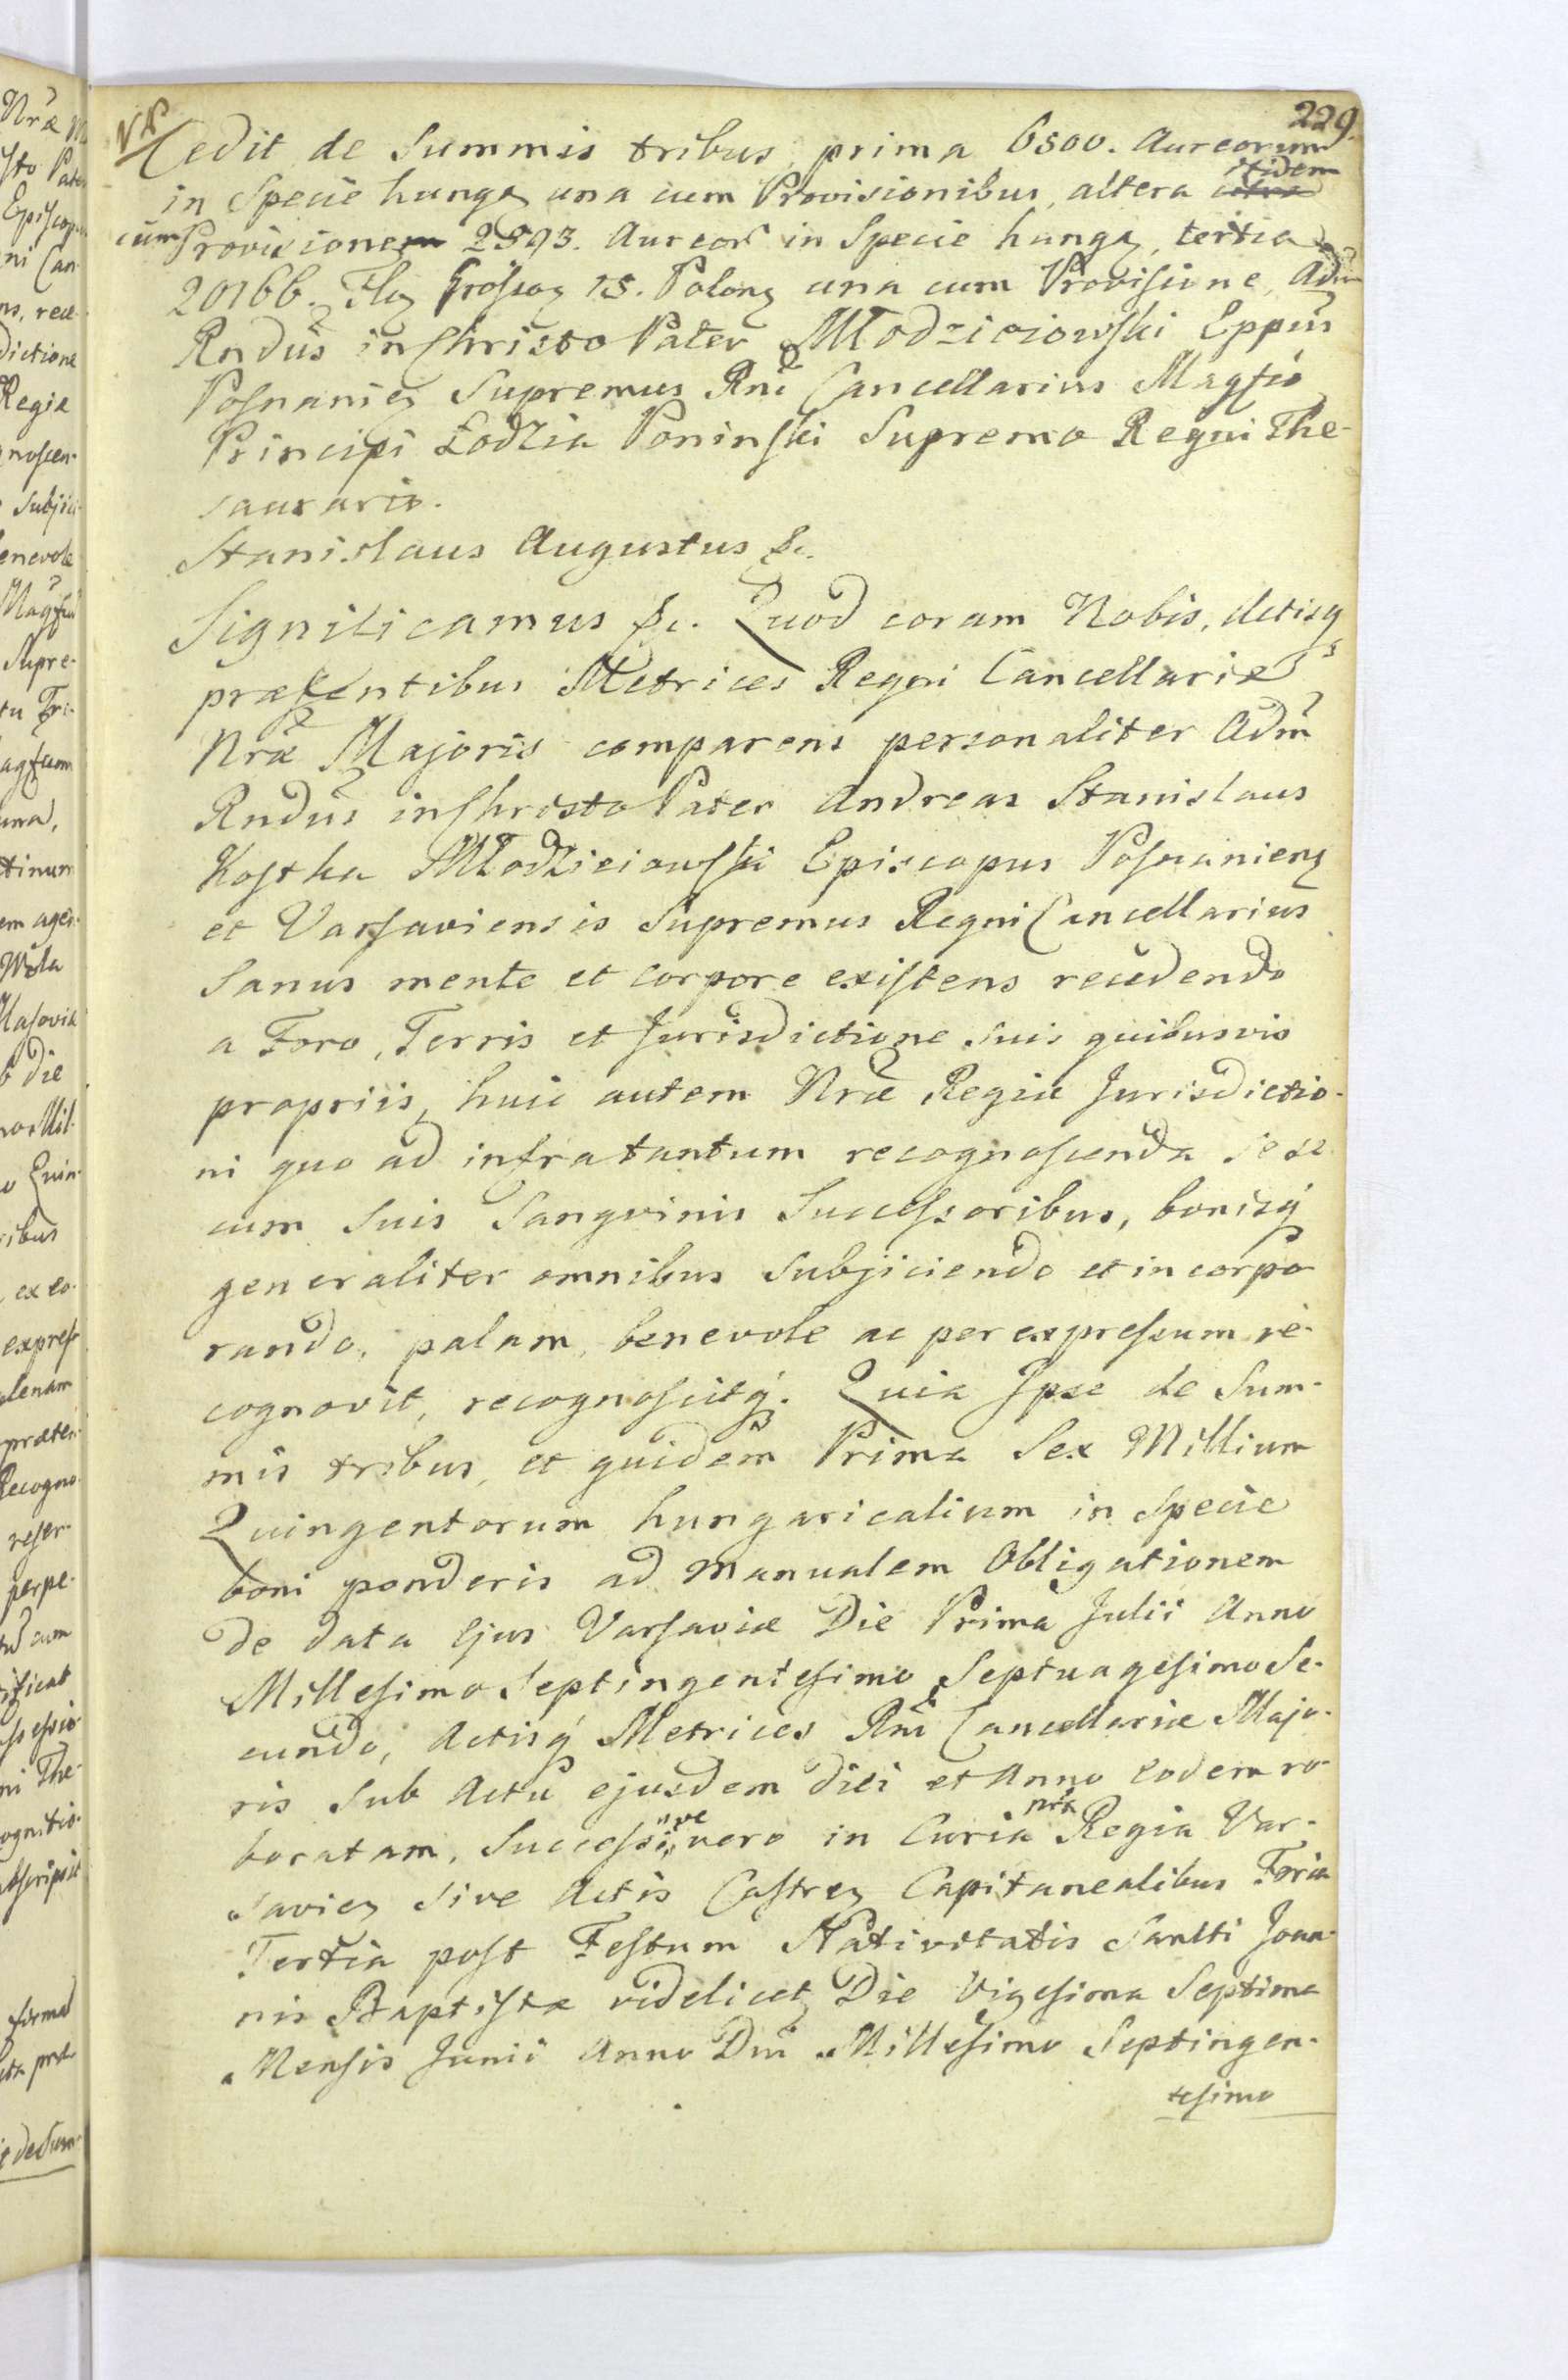 229.
NB
Cedit de Summis tribus, prima 6500. Aureorum
in Specie hungz una cum Provisionibus, altera itidem
cum Provisionem 2593. Aureor in Specie hungz, tertia
20166. Flz Grossoz 15. Polonz una cum Provisione, Adm
Rndus in Christo Pater Młodzieiowski Eppus
Posnaniez Supremus Rni Cancellarius Magfco
Principi Łodzia Poninski Supremo Regni The-
saurario.
Stanislaus Augustus &c.
Significamus &c. Quod coram Nobis, Actisq
præsentibus Metrices Regni Cancellariæ
Nræ Majoris comparens personaliter Adm
Rndus in Christo Pater Andreas Stanislaus
Kostka Młodzieiowski Episcopus Posnanienz
et Varsaviensis Supremus Regni Cancellarius
Sanus mente et Corpore existens recedendo
a Foro, Terris et Jurisdictione suis quibusvis
propriis, huic autem Nræ Regiæ Jurisdictio-
ni quo ad infra tantum recognoscenda sese
cum Suis Sangvinis Successoribus, bonisq
generaliter omnibus Subjiciendo et incorpo
rando, palam, benevole ac per expressum re-
cognovit, recognoscitq. Quia Ipse de Sum-
mis tribus, et quidem Prima Sex Millium
Quingentorum hungaricalium in Specie
boni ponderis ad Manualem Obligationem
de data Ejus Varsaviæ Die Prima Julii Anno
Millesimo Septingentesimo Septuagesimo Se-
cundo, Actisq Metrices Rni Cancellariæ Majo-
ris Sub Actu ejusdem diei et Anno eodem ro-
boratam, Successive vero in Curia nra Regia Var-
saviez Sive Actis Castrez Capitanealibus Feria
Tertia post Festum Nativitatis Sancti Joan-
nis Baptistæ videlicetz Die Vigesima Septima
Mensis Junii Anno Dni Millesimo Septingen-
tesimo